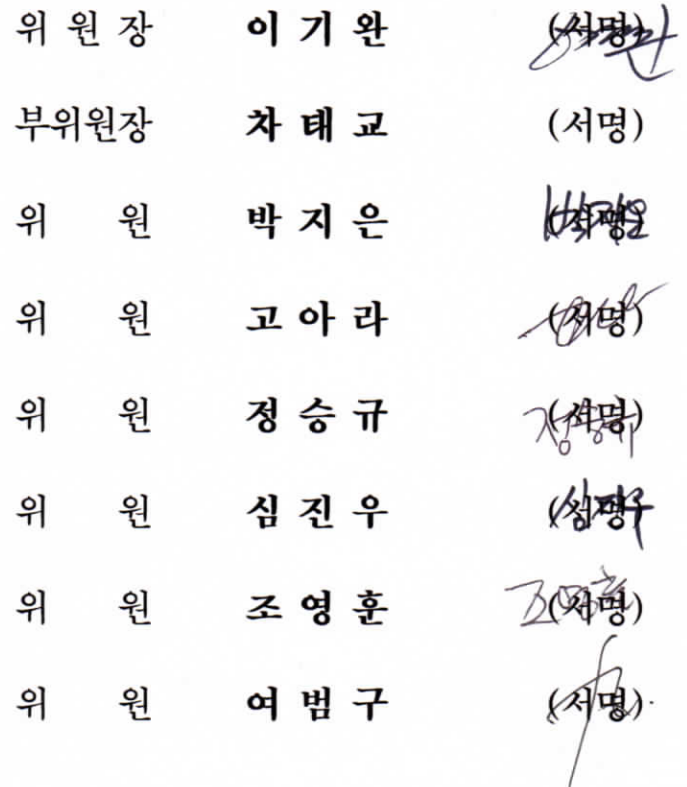 위 원 장 이 기 완 (서명)
부위원장 차 태 교 (서명)
위 원 박 지 은 (서명)
위 원 고 아 라 (서명)
위 원 정 승 규 (서명)
위 원 심 진 우 (서명)
위 원 조 영 훈 (서명)
위 원 여 범 구 (서명)